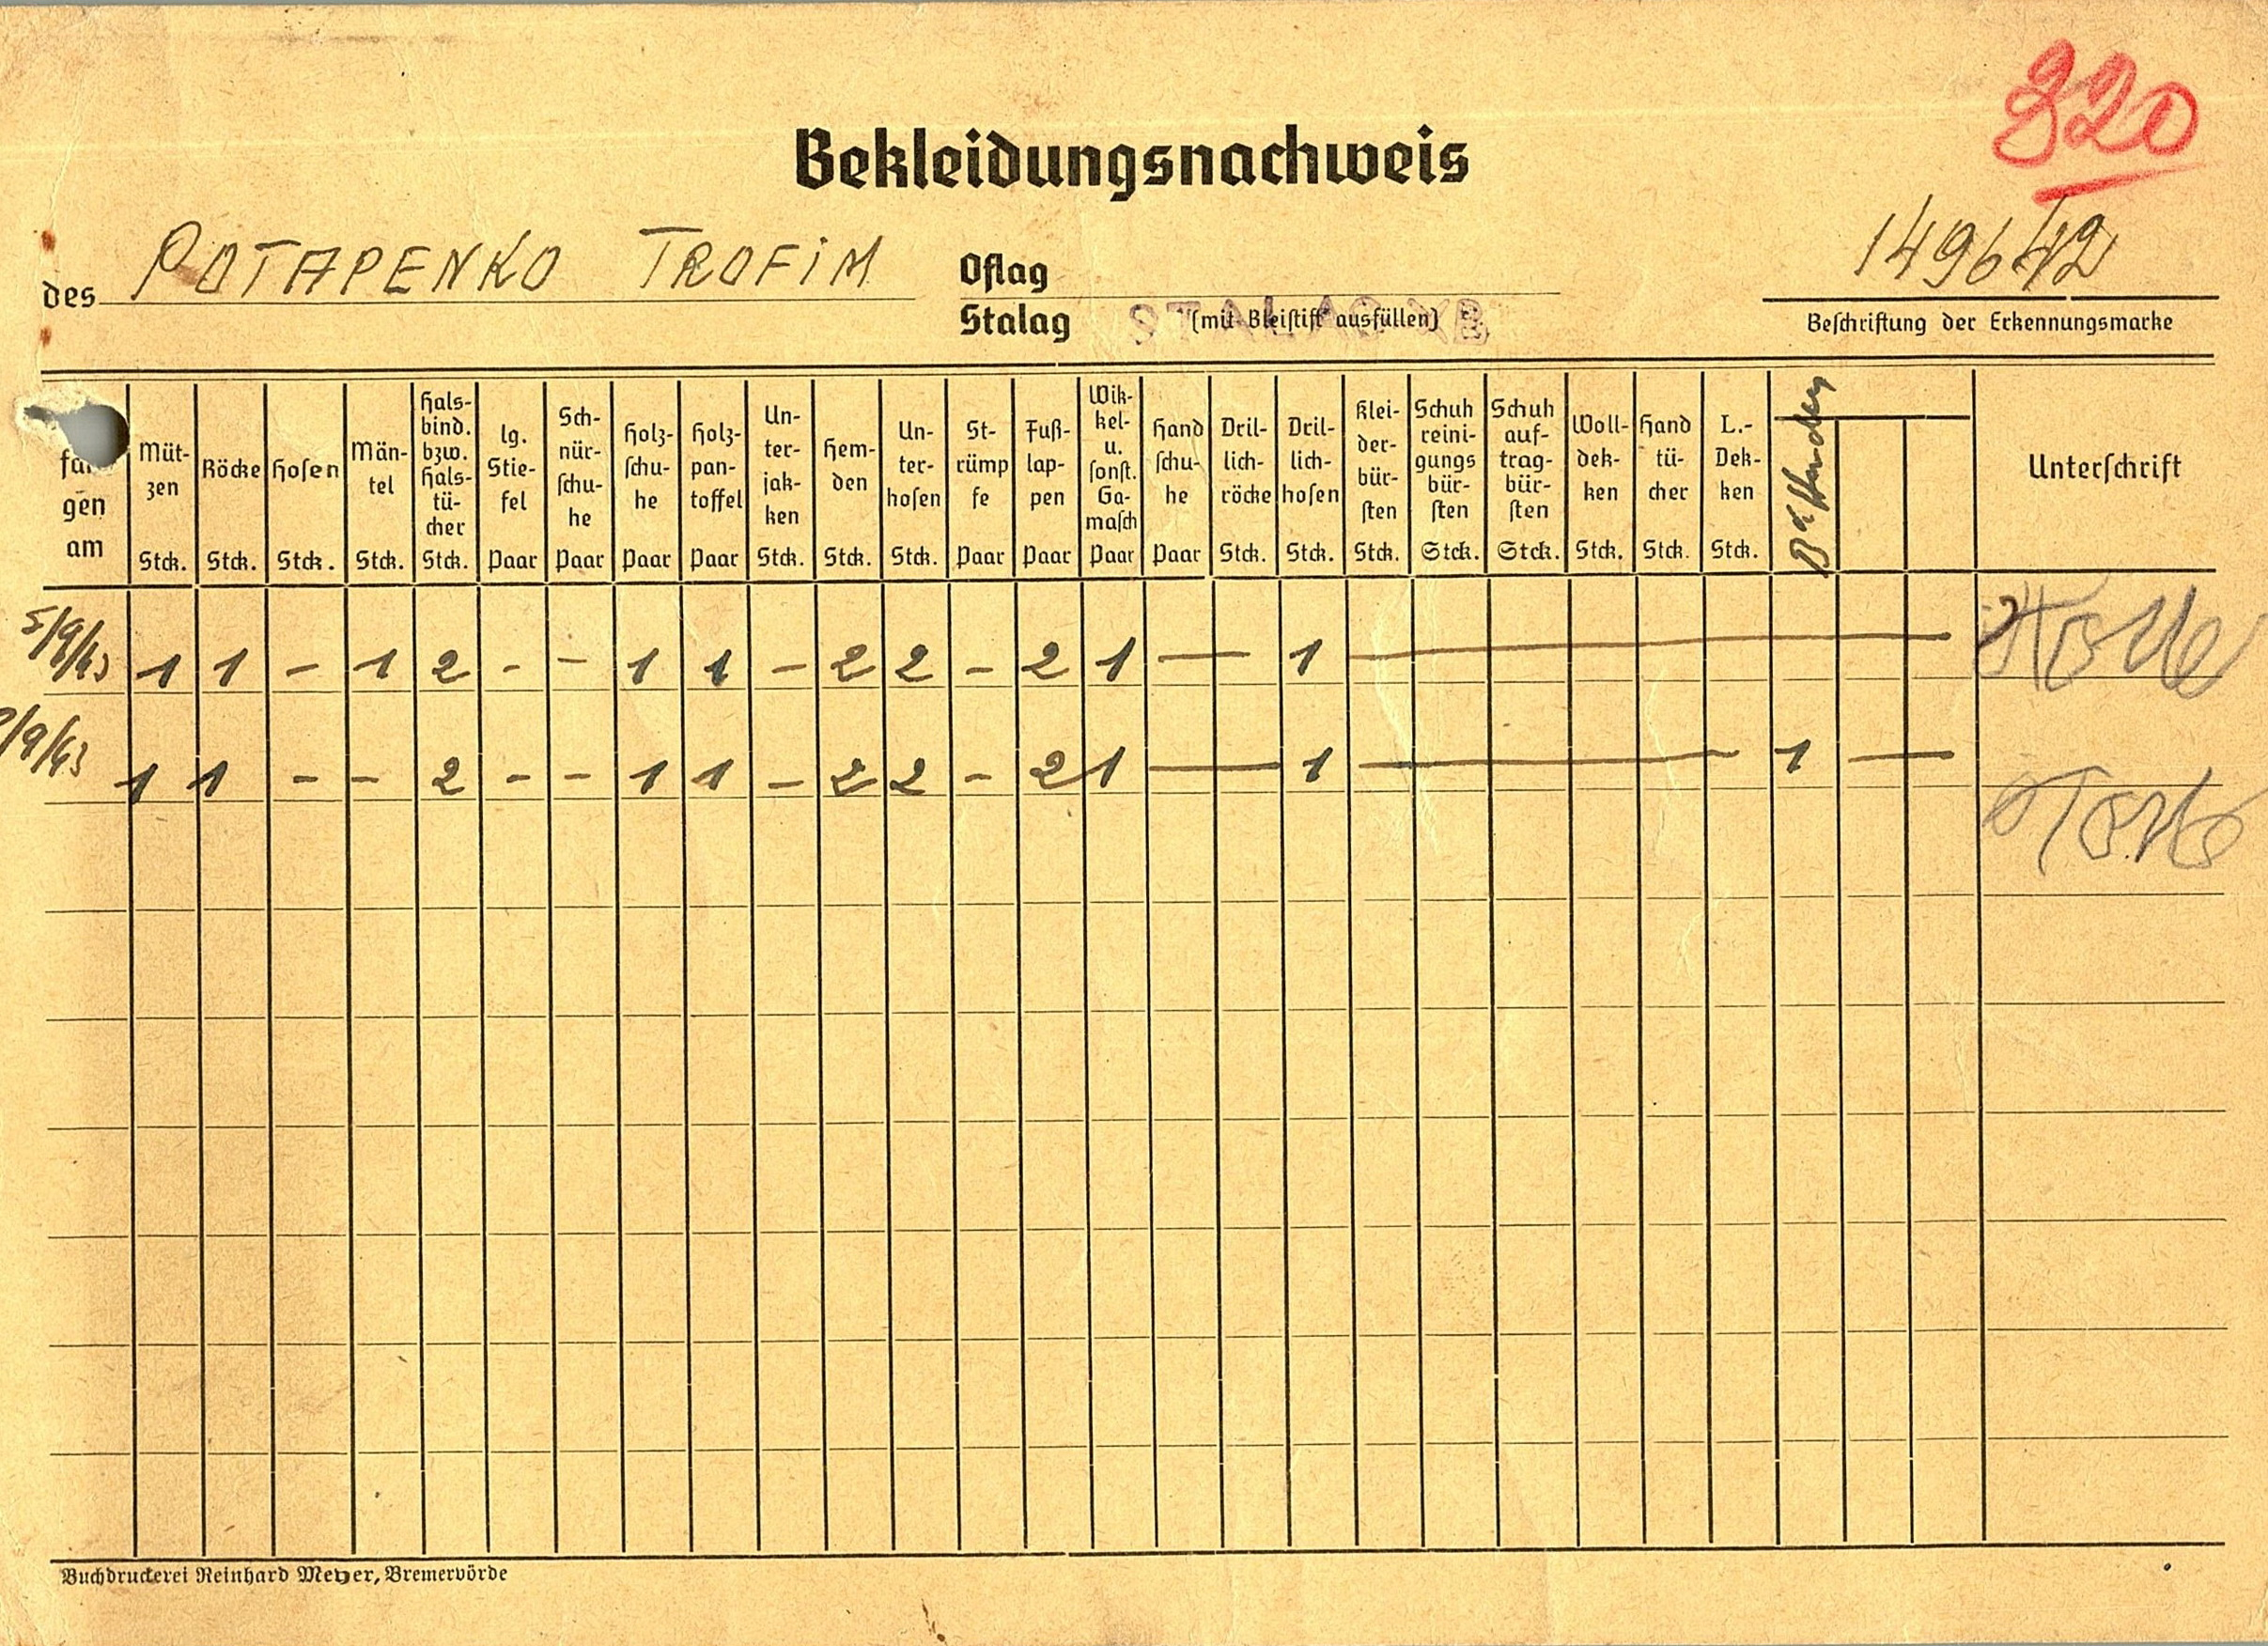 820
Bekleidungsnachweis
des POTAPENKO TROFiM
Oflag
Stalag STALAG XB (mit Bleistift ausfüllen)
149642
Beschriftung der Erkennungsmarke
gen am
Müt- zen Stck.
Röcke Stck.
Hosen Stck.
Män- tel Stck.
Hals- bind. bzw. Hals- tü- cher Stck.
lg. Stie- fel Paar
Sch- nür- schu- he Paar
Holz- schu- he Paar
Holz- pan- toffel Paar
Un- ter- jak- ken Stck.
Hem- den Stck.
Un- ter- hosen Stck.
St- rümp fe Paar
Fuß- lap- pen Paar
Wik- kel- u. sonst. Ga- masch Paar
Hand schu- he Paar
Dril- lich- röcke Stck.
Dril- lich- hosen Stck.
Klei- der- bür- sten Stck.
Schuh reini- gungs bür- sten Stck.
Schuh auf- trag- bür- sten Stck.
Woll- dek- ken Stck.
Hand tü- cher Stck.
L.- Dek- ken Stck.
Unterschrift
5/9/43 1 1 – 1 2 - - 1 1 – 2 2 – 2 1 — 1 —
/9/43 1 1 - - 2 - - 1 1 – 2 2 - 2 1 — 1 — 1 —
Buchdruckerei Reinhard Meyer, Bremervörde